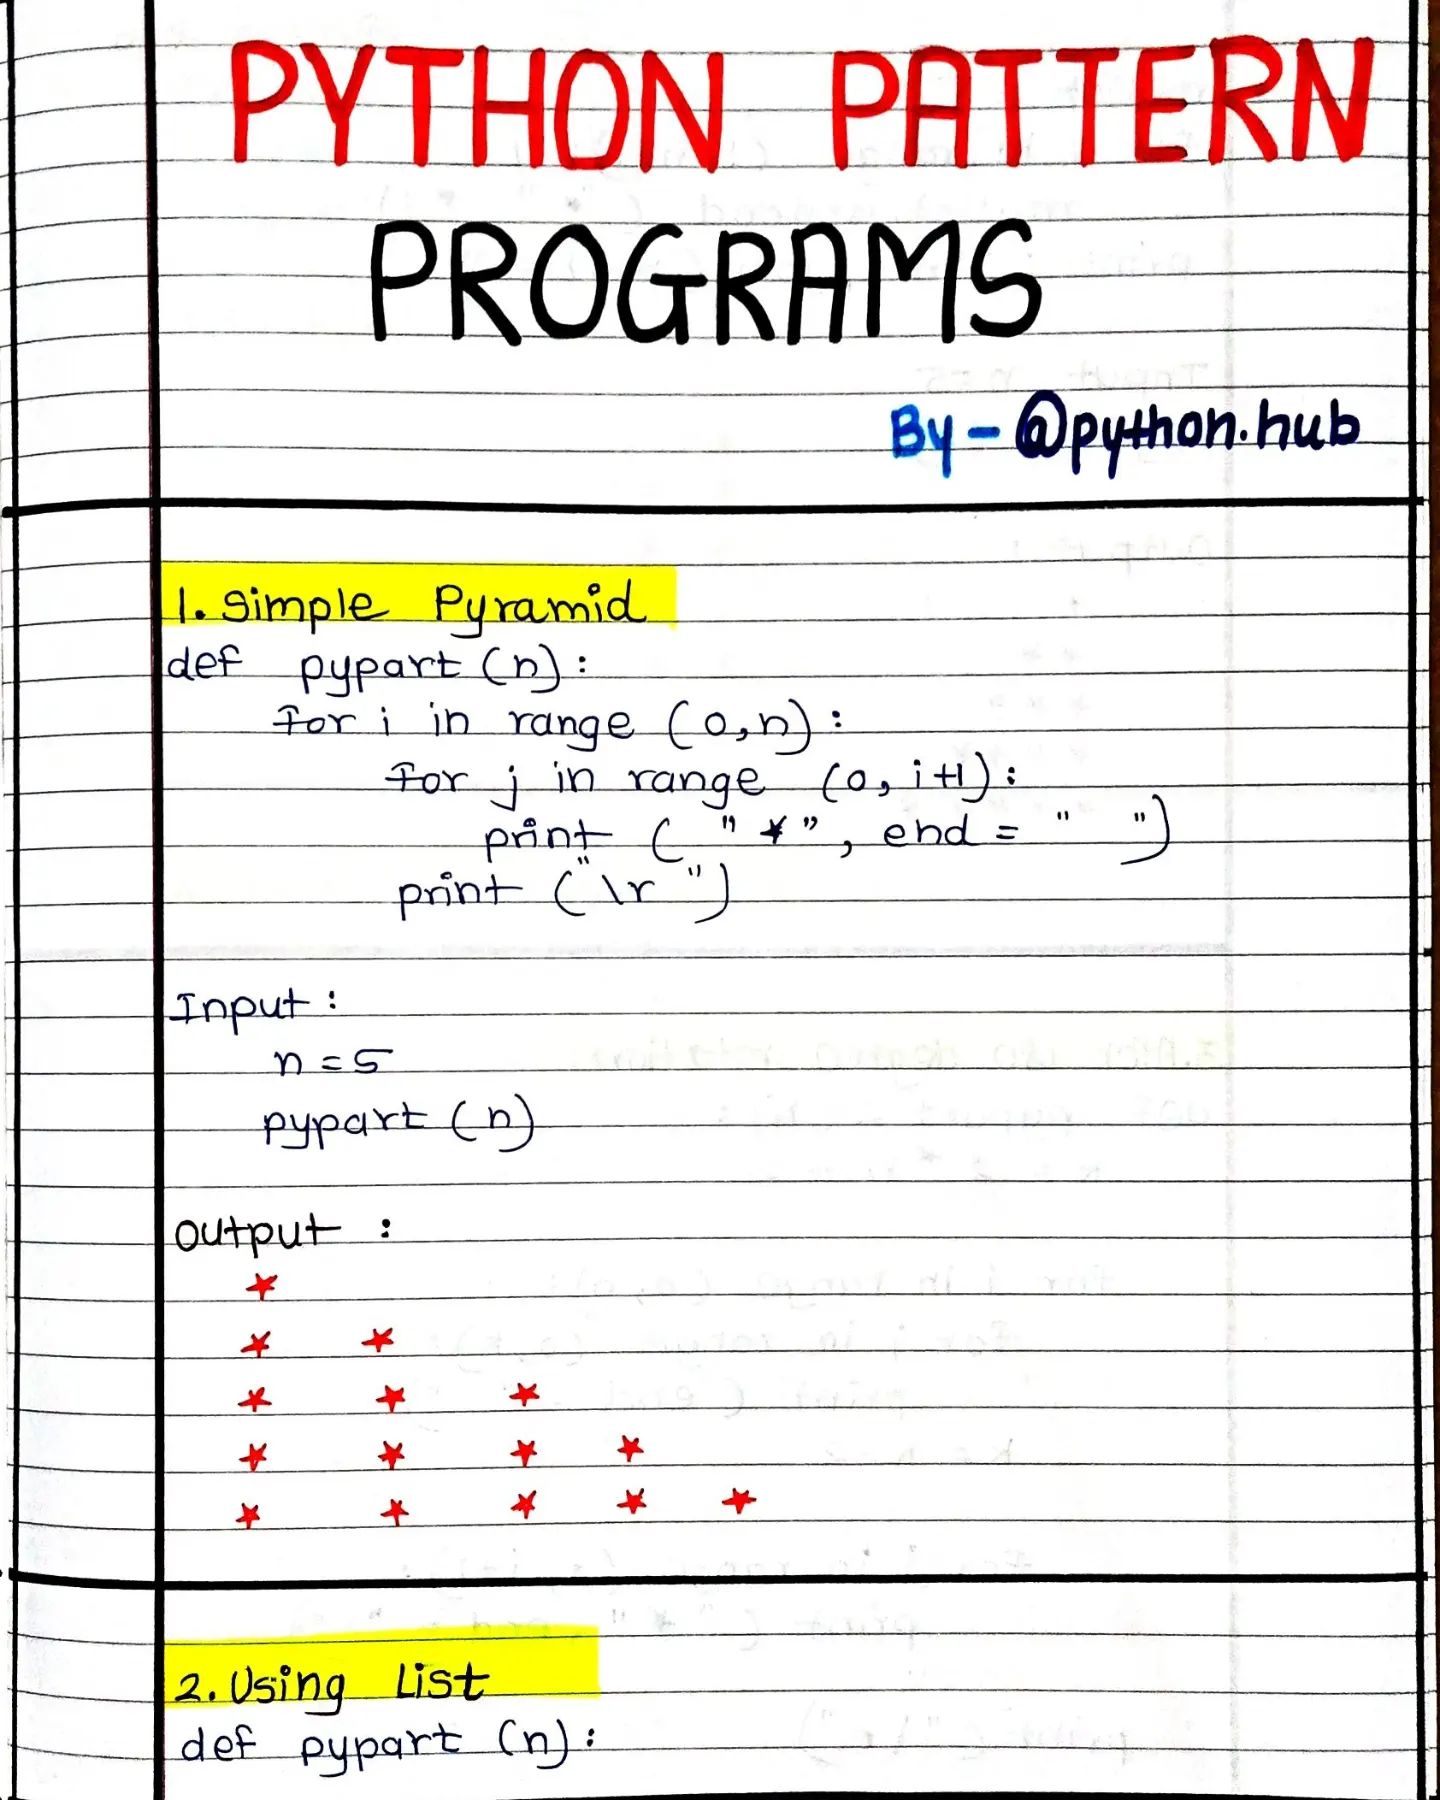 PYTHON PATTERN
PROGRAMS
By - @python.hub
1. Simple Pyramid
def pypart (n):
for i in range (0,n):
for j in range (0, i+1):
print ( "*", end = " ")
print ("\r ")
Input :
n = 5
pypart (n)
Output :
*
* *
* * *
* * * *
* * * * *
2. Using List
def pypart (n):